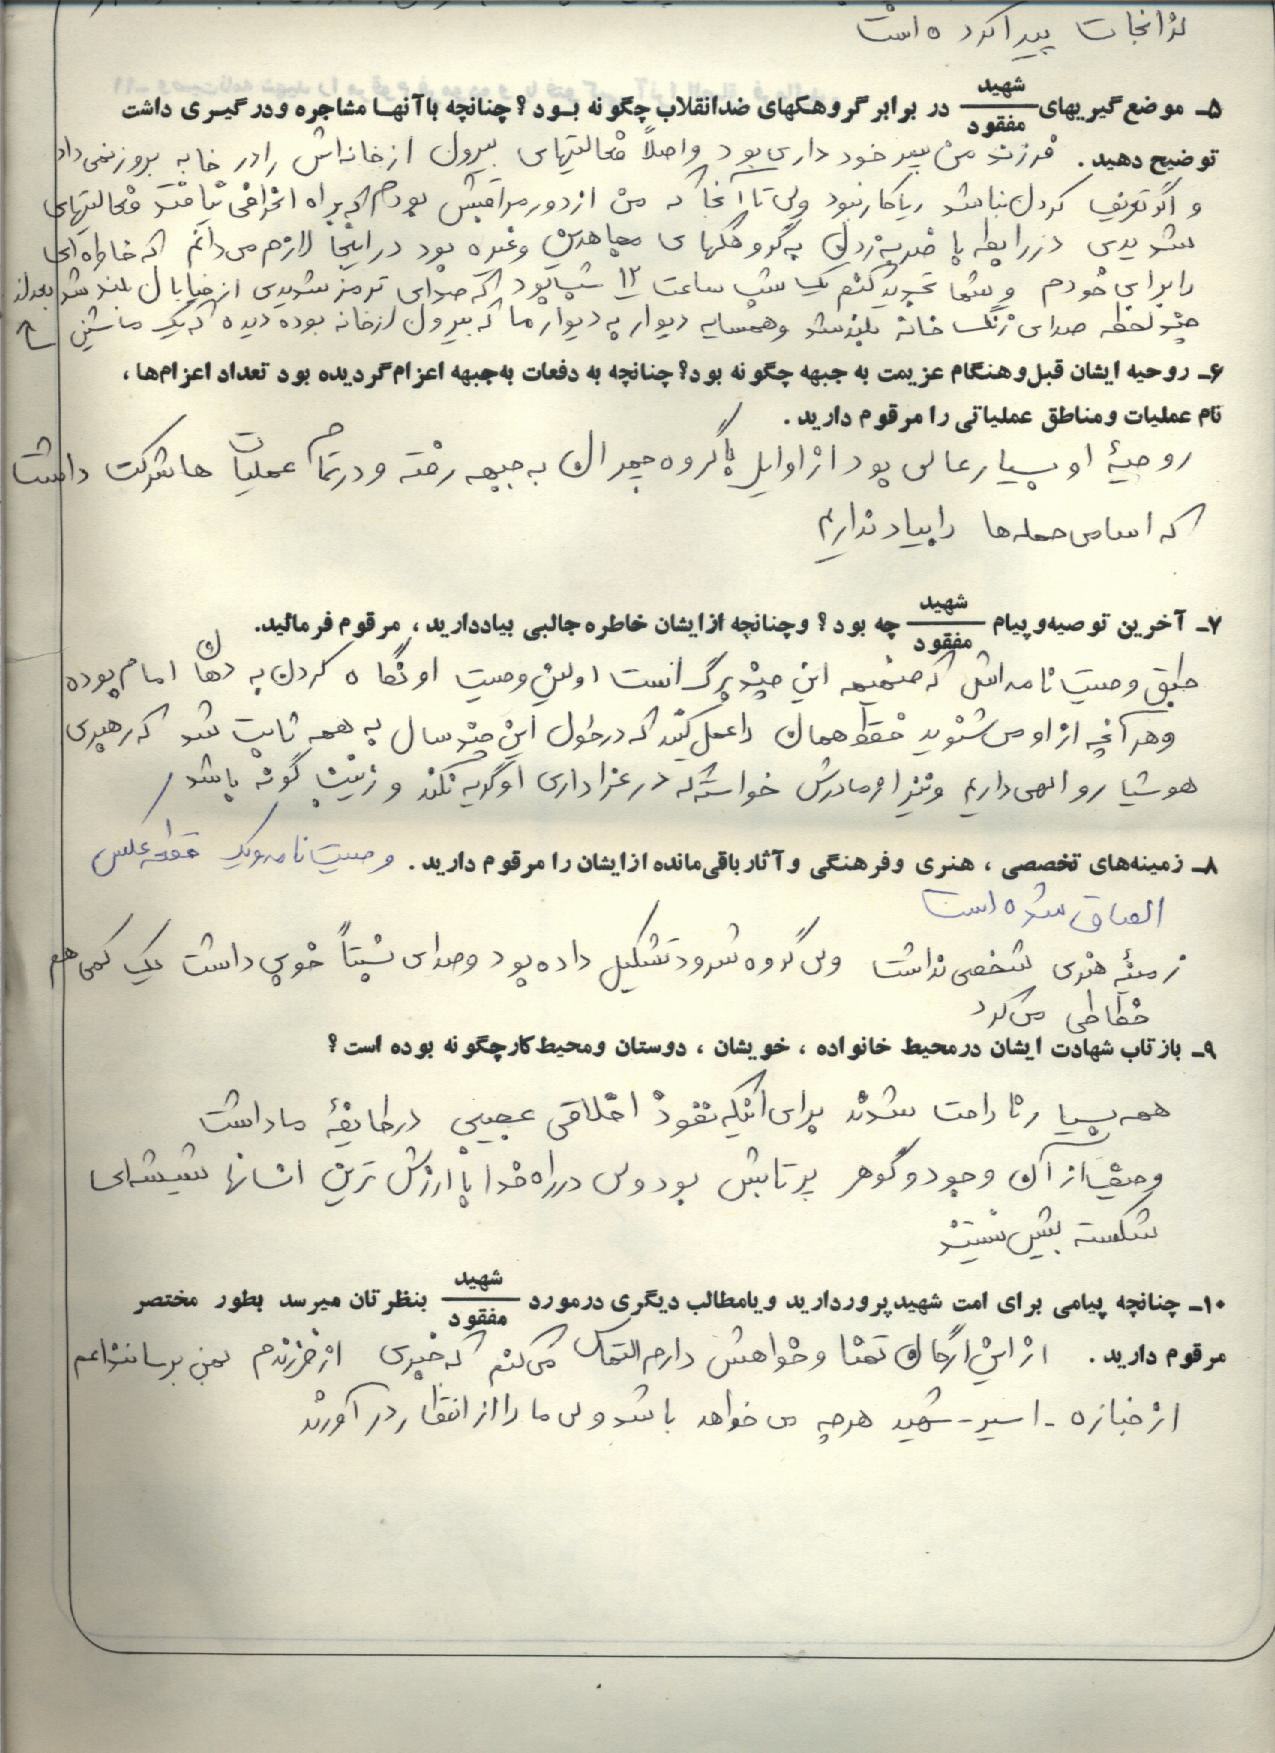 لذا نجات پیدا کرده است
۵ـ موضع‌گیریهای شهید/مفقود در برابر گروهکهای ضدانقلاب چگونه بود؟ چنانچه باآنها مشاجره ودرگیری داشت
توضیح دهید. فرزند من پسر خود داری بود و اصلاً فعالیتهای بیرون از خانه‌اش را در خانه بروز نمی‌داد
و اگر تعریف کردن نباشد ریاکار نبود ولی تا آنجا که من از دور مراقبش بودم که براه انحرافی نیافتد فعالیتهای
شدیدی در رابطه با ضربه زدن به گروهکهای مجاهدین وغیره بود در اینجا لازم می‌دانم که خاطره‌ای
را برای خودم و شما تجدید کنم یک شب ساعت ۱۲ شب بود که صدای ترمز شدیدی از خیابان بلند شد بعد از
چند لحظه صدای زنگ خانه بلند شد و همسایه دیوار به دیوار ما که بیرون از خانه بوده دیده که یک ماشین
۶ـ روحیه ایشان قبل‌وهنگام عزیمت به جبهه چگونه بود؟ چنانچه به دفعات به‌جبهه اعزام‌گردیده بود تعداد اعزام‌ها،
نام عملیات ومناطق عملیاتی را مرقوم دارید.
روحیهٔ او بسیار عالی بود از اوایل با گروه چمران به جبهه رفته و در تمام عملیات ها شرکت داشت
که اسامی حمله‌ها را بیاد نداریم
۷ـ آخرین توصیه‌وپیام شهید/مفقود چه بود؟ وچنانچه ازایشان خاطره جالبی بیاددارید، مرقوم فرمائید.
طبق وصیت نامه‌اش که ضمیمه این چند برگ است اولین وصیت او نگاه کردن به دهان امام بوده
و هر آنچه از او می‌شنوید فقط همان را عمل کنید که در طول این چند سال به همه ثابت شد که رهبری
هوشیار و الهی داریم و نیز از مادرش خواسته که در عزاداری او گریه نکند و زینب گونه باشد
۸ـ زمینه‌های تخصصی، هنری وفرهنگی و آثارباقی‌مانده ازایشان را مرقوم دارید. وصیت نامه و یک قطعه عکس
الصاق شده است
زمینهٔ هنری شخصی نداشت ولی گروه سرود تشکیل داده بود و صدای نسبتاً خوبی داشت یک کمی هم
خطاطی می‌کرد
۹ـ بازتاب شهادت ایشان درمحیط خانواده، خویشان، دوستان ومحیط‌کارچگونه بوده است؟
همه بسیار ناراحت شدند برای اینکه نفوذ اخلاقی عجیبی در طایفهٔ ما داشت
وحیف از آن وجود و گوهر پر تابش بود ولی در راه خدا با ارزش ترین انسانها شیشه‌ای
شکسته بیش نیستند
۱۰ـ چنانچه پیامی برای امت شهیدپروردارید ویامطالب دیگری درمورد شهید/مفقود بنظرتان میرسد بطور مختصر
مرقوم دارید. از این ارگان تمنا و خواهش دارم التماس می‌کنم که خبری از فرزندم بمن برسانند اعم
از جنازه - اسیر - شهید هر چه می خواهد باشد ولی ما را از انتظار در آورند